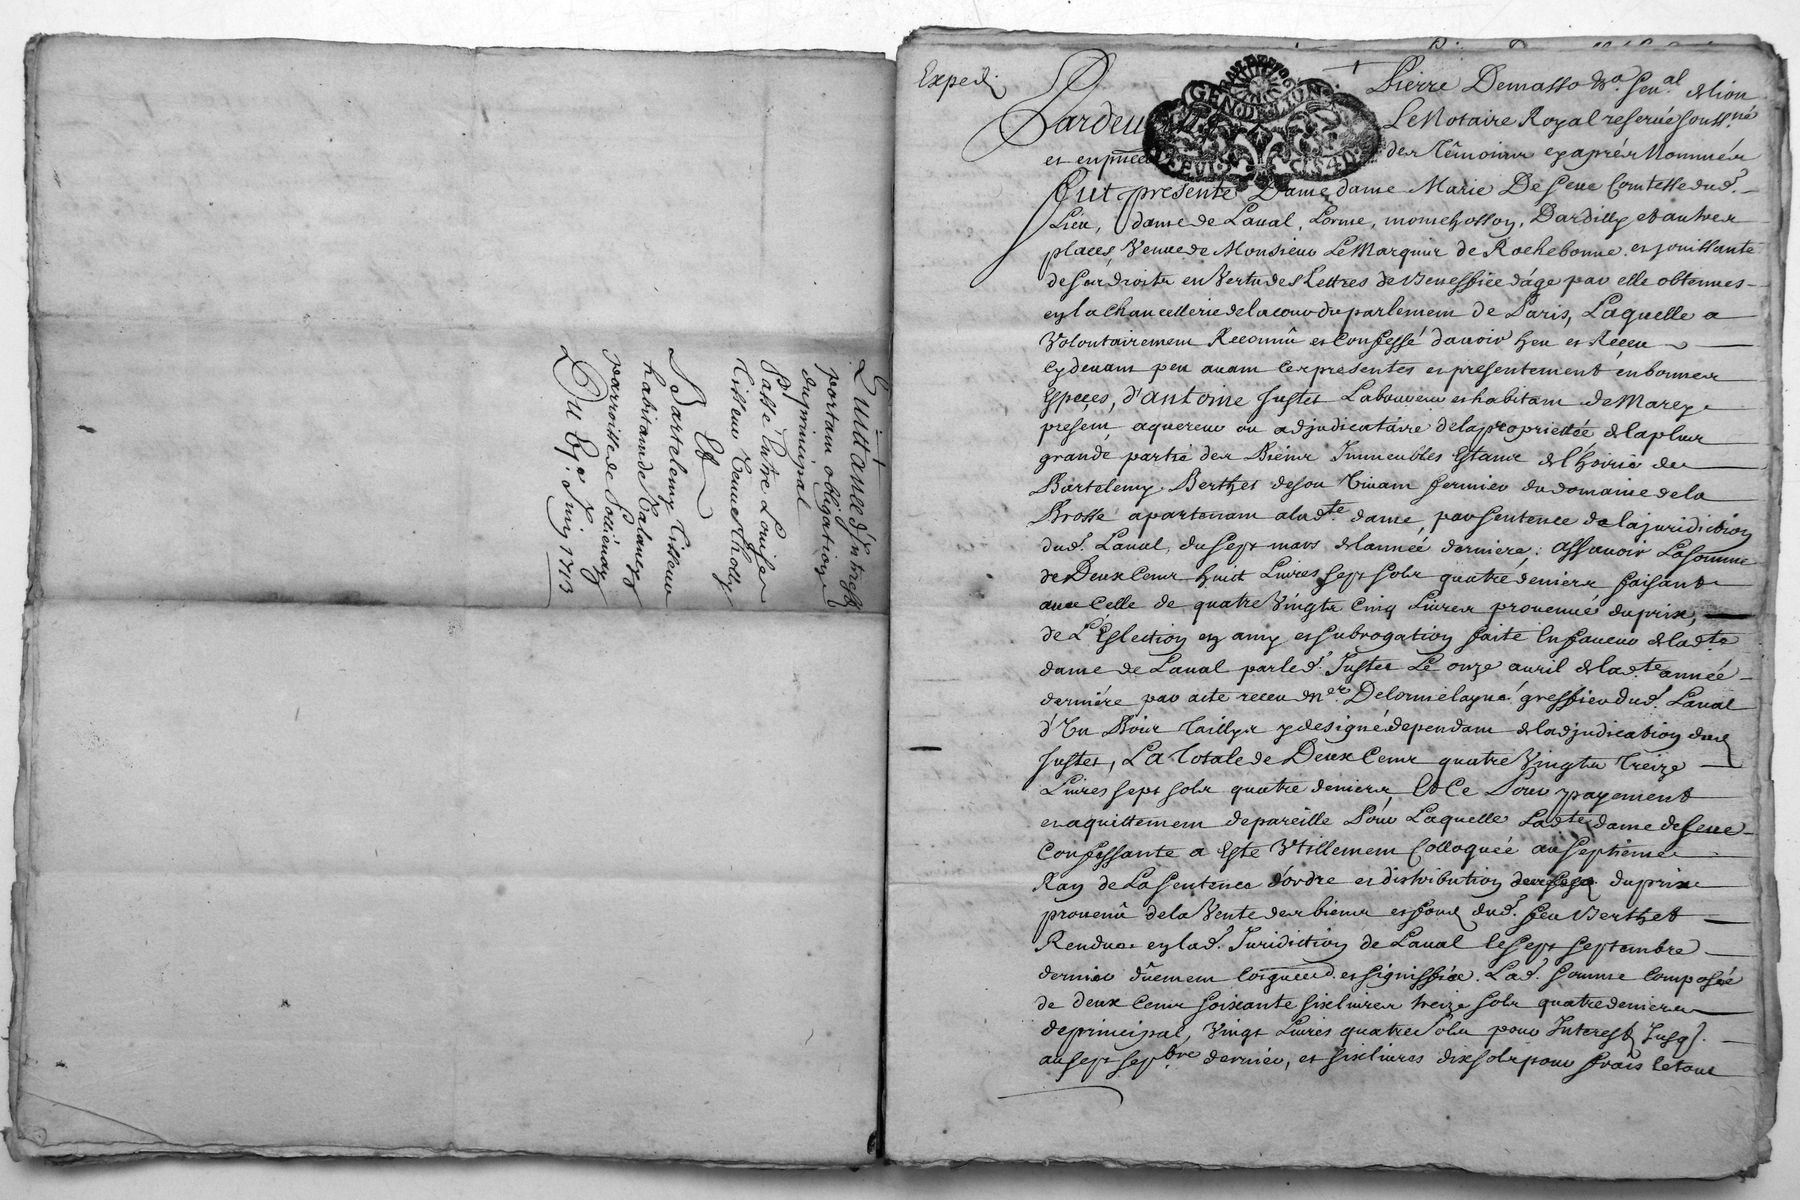 Quittance d'Intrest
portant obligation
du principal
Passe Entre Louise
Tisseur Veuve Tholly
Et
Bartelemy Tisseur
habitant de Talancy
parroisse de Pollienay
Du 1713
Exped.
Pierre Demasso
GEN. DE LION
Pardeuant Le Notaire Royal reserué souss.né
et en presence des Témoins cy aprés Nommés
fut presente Dame dame Marie De Seue Comtesse dud.
Lieu, dame de Laual, Lorme, Dardilly et autres
places, Veuue de Monsieur Le Marquis de Rochebonne et jouissante
de ses droits en Vertu des Lettres de Beneffice d'âge par elle obtenues
en la Chancellerie de la cour du parlement de Paris, Laquelle a
Volontairement Reconnû et Confessé dauoir heu et Receu
cy deuant peu auant ces presentes et presentement en bonnes
Espeçes, d'Antoine Justet Laboureur et habitant de Marcy
present aquereur ou adjudicataire de la proprieté de la plus
grande partie des Biens Immeubles Estants de l'hoirie de
Bartelemy Berthet de son Viuant fermier du domaine de la
Brosse apartenant a lad.te dame, par sentence de la juridiction
dud. Laual, du sept mars de l'année derniere; assauoir La somme
de Deux Cens huict Liures sept sols quatre deniers faisant
auec Celle de quatre Vingts Cinq Liures prouenuë du prix,
de L'Eslection en amy et subrogation faite En faueur de lad.te
dame de Laual par led. Justet Le onze auril de lad.te année
derniére par acte receu M.er Delorme layné greffier dud. Laual
d'Un Bois Taillys y designé dependant de l'adjudication dud.
Justet, La Totale de Deux Cens quatre Vingts Treize
Liures sept sols quatre deniers, Et Ce Pour payement
et aquittement de pareille Pour Laquelle Lad.te dame de Seue
Confessante a Esté Vtillement Colloquée au Septiême
Rang de La Sentence d'ordre et distribution du prix
prouenû de la Vente des biens et fonds dud. feu Berthet
Rendue en lad. Juridiction de Laual le sept septembre
dernier dûement et signiffiée. Lad. somme composée
de deux Cens soixante six liures treize sols quatre deniers
de principal, Vingt Liures quatre sols pour Interest Jusq.
au sept sep.bre dernier, et six liures dix sols pour frais le tout